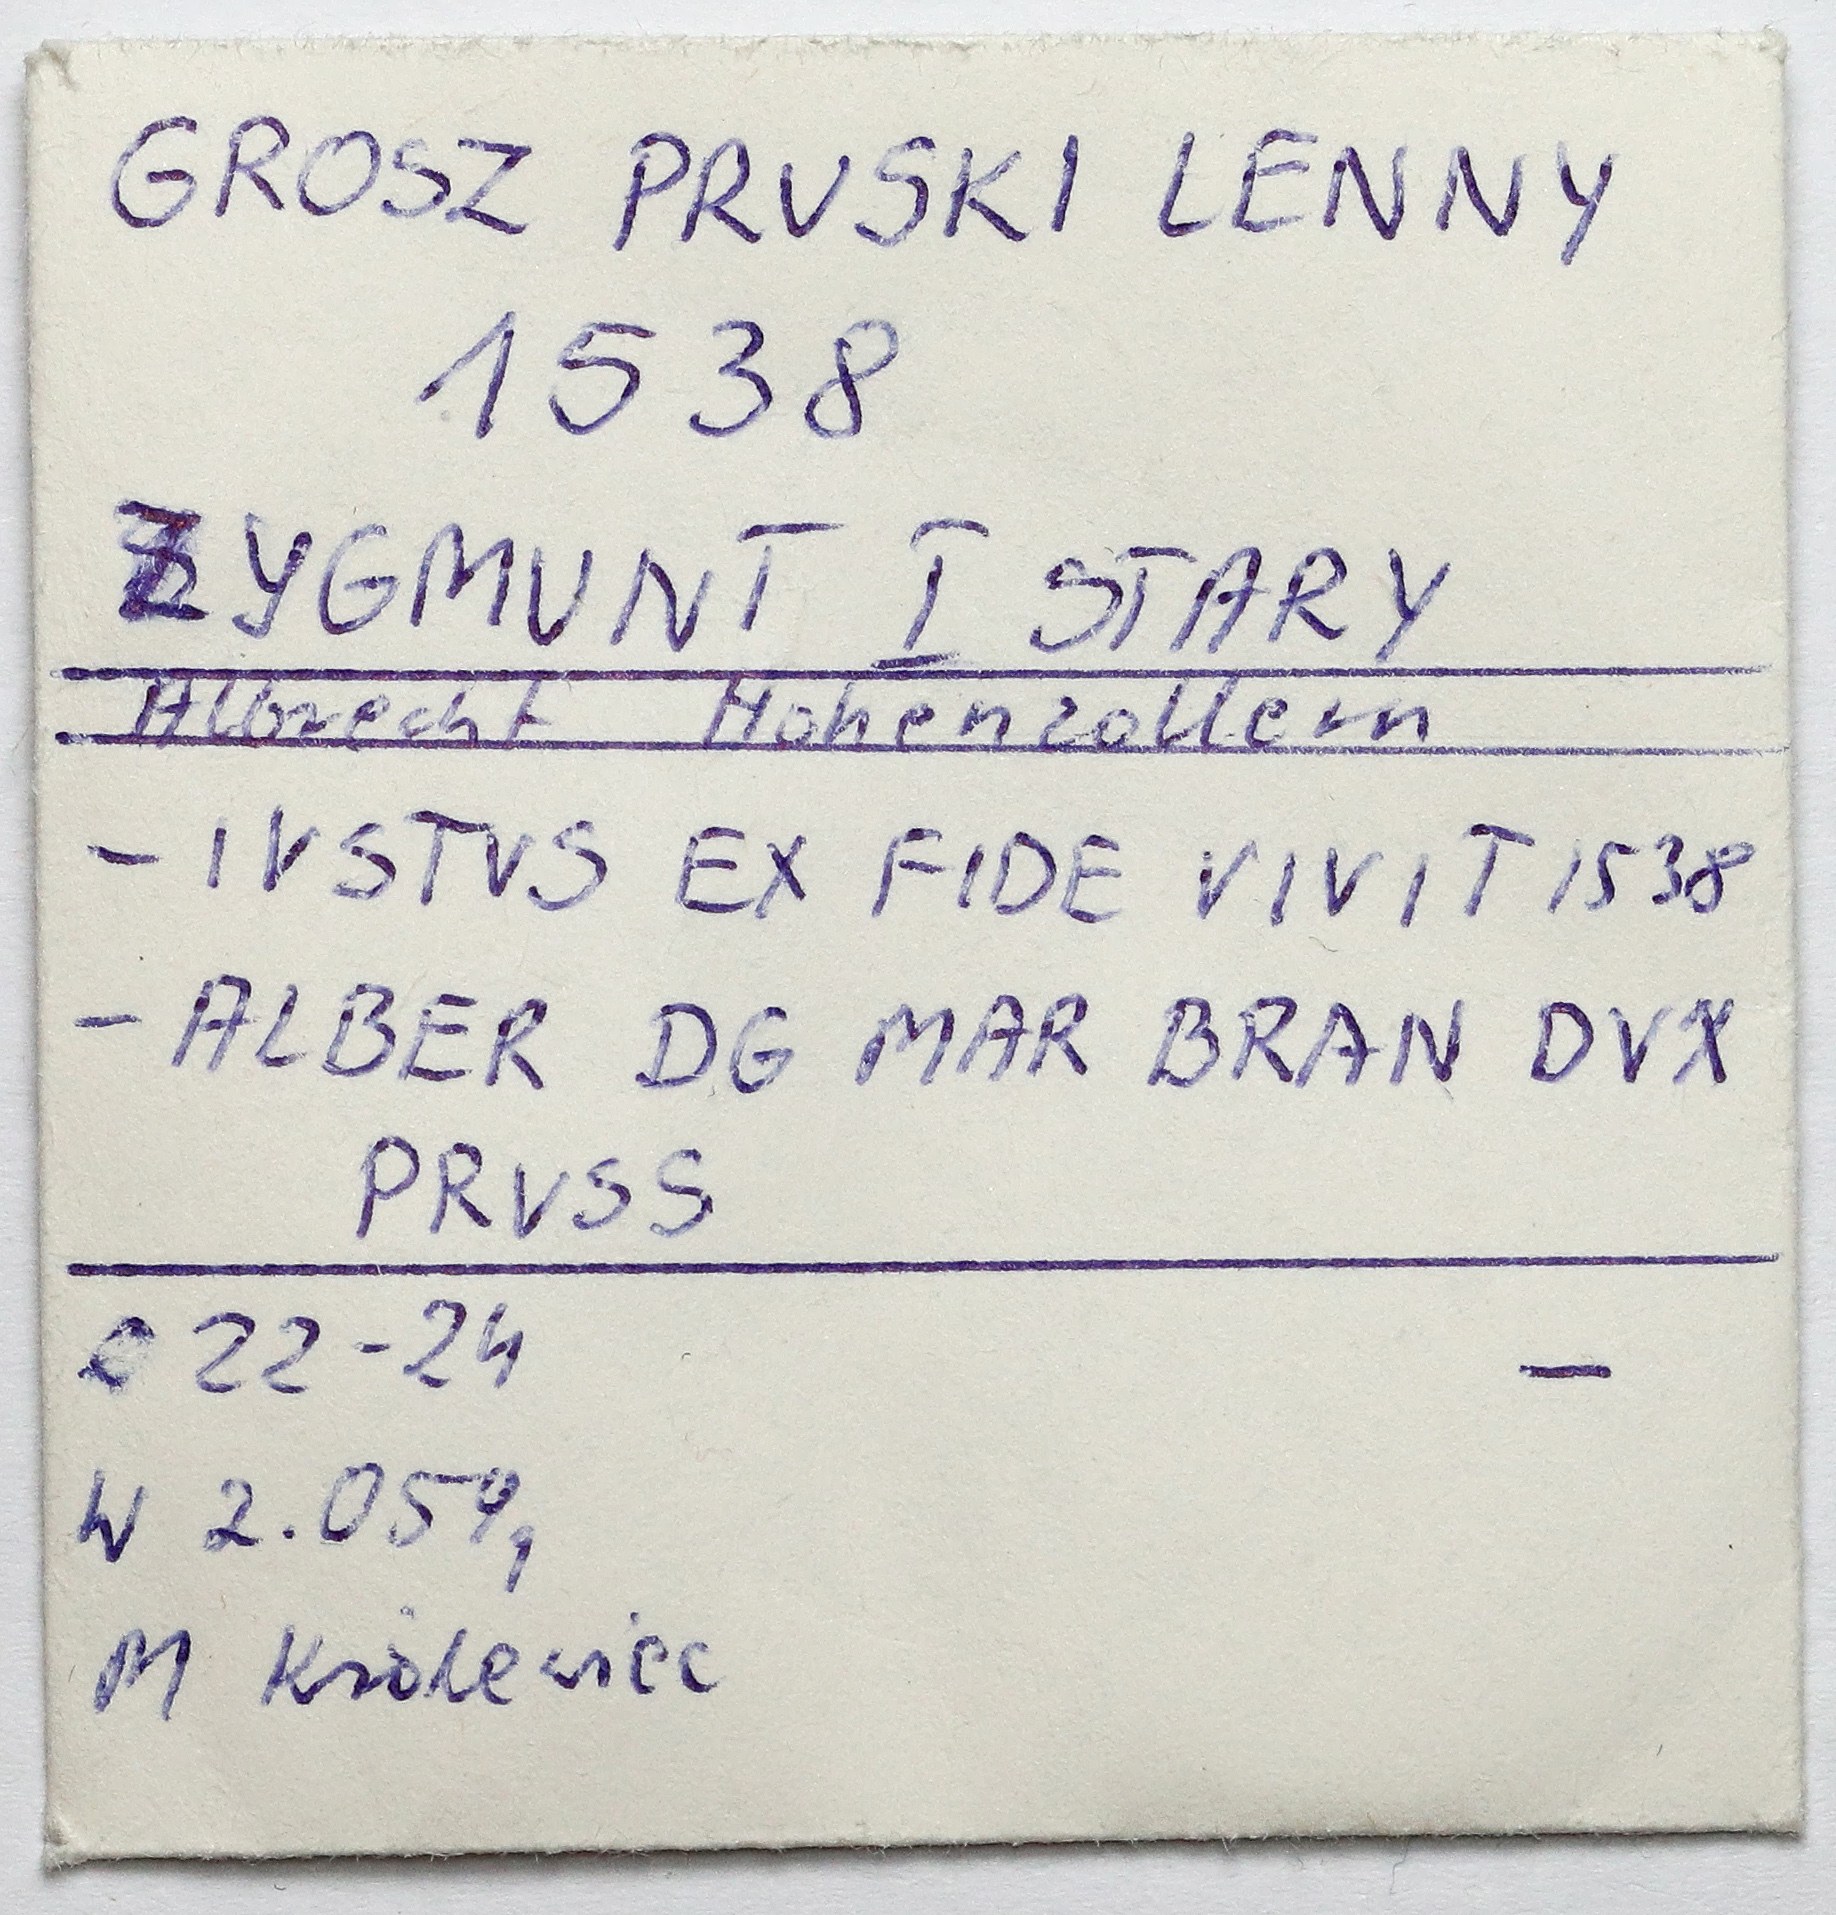 GROSZ PRVSKI LENNY
1538
ZYGMUNT I STARY
Albrecht Hohenzollern
- IVSTVS EX FIDE VIVIT 1538
- ALBER DG MAR BRAN DVX
PRVSS
22-24 -
W 2.05g
M Królewiec